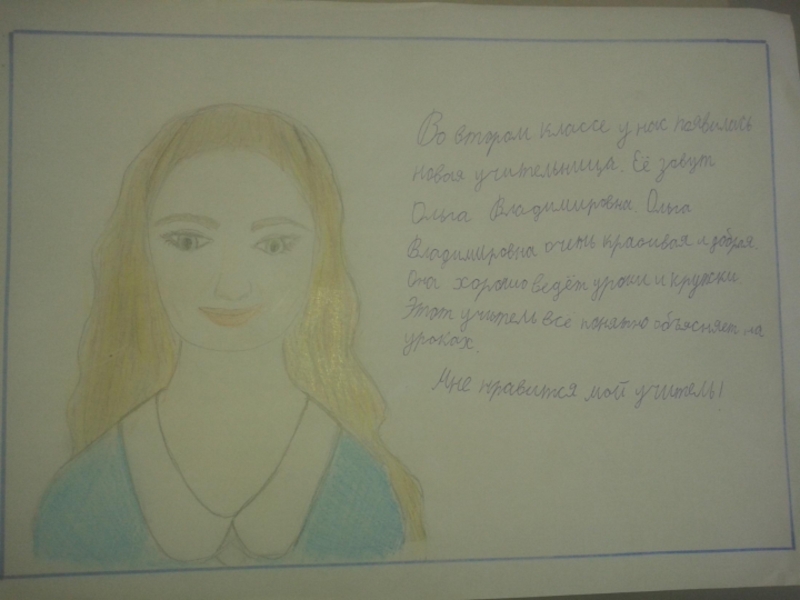 Во втором классе у нас появилась
новая учительница. Её зовут
Ольга Владимировна. Ольга
Владимировна очень красивая и добрая.
Она хорошо ведёт уроки и кружки.
Этот учитель всё понятно объясняет на
уроках.
Мне нравится мой учитель!